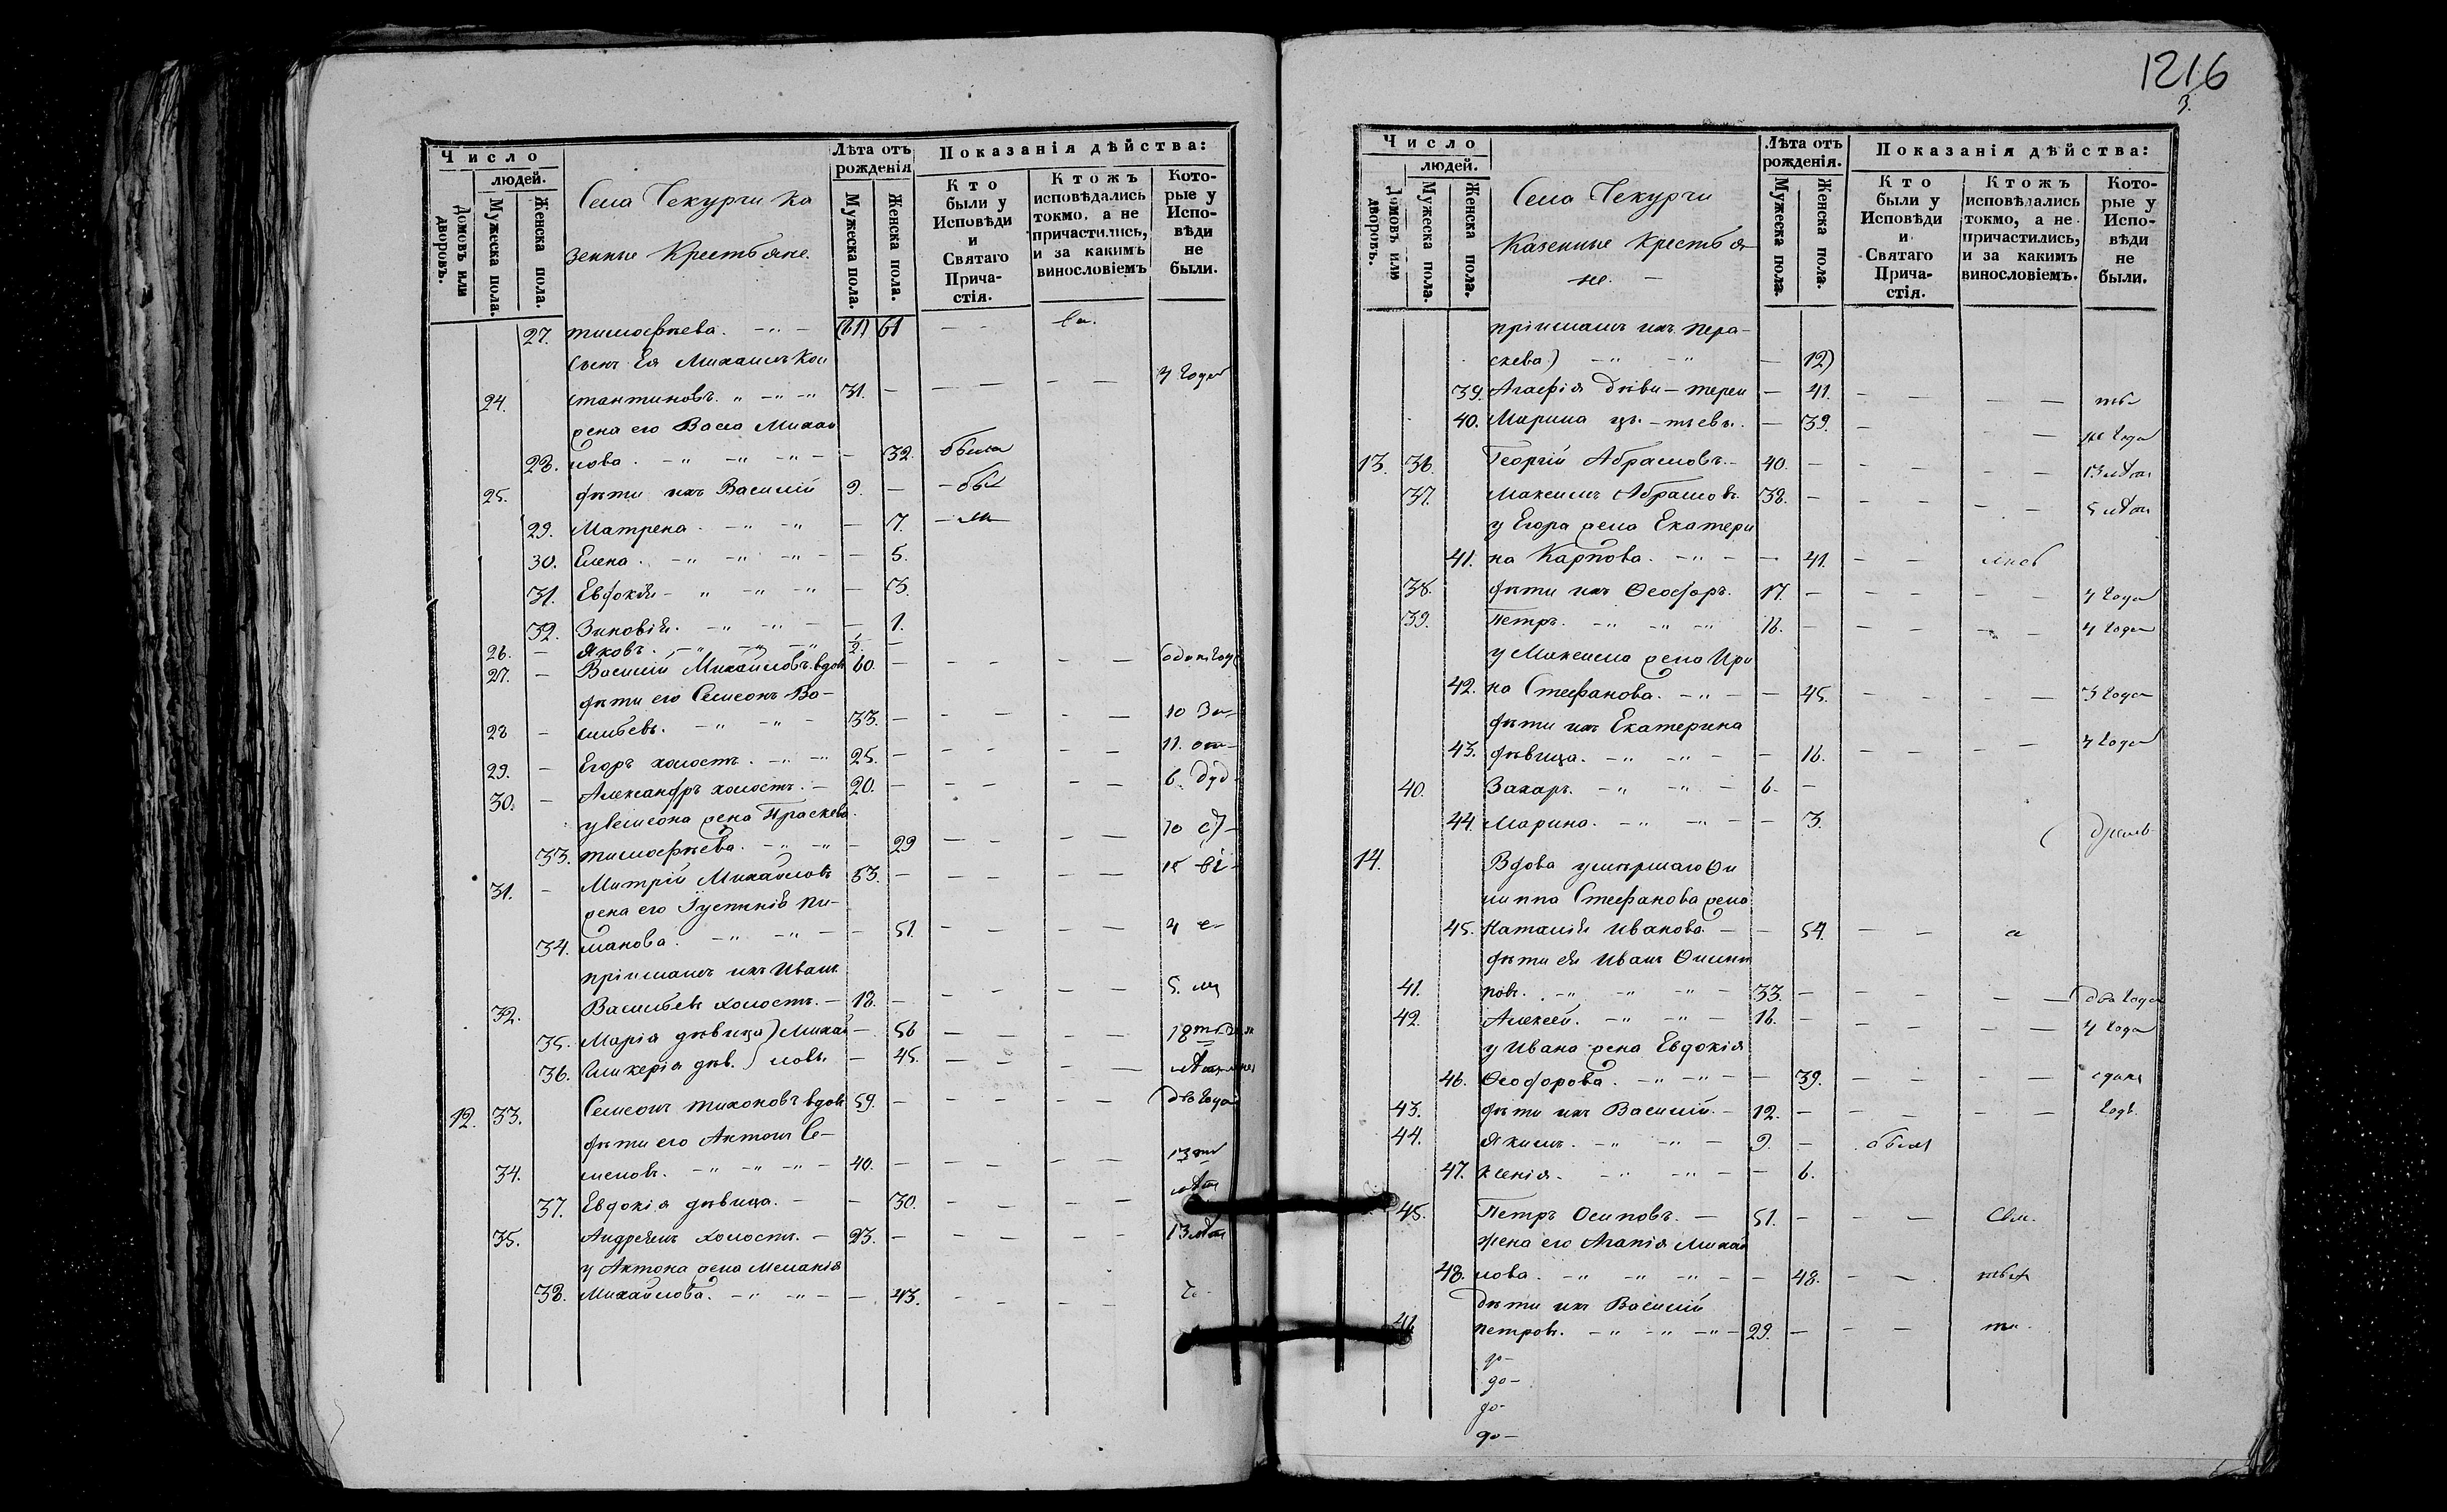 1216
3.
Число
людей.
Домовъ или дворовъ.
Мужеска пола.
Женска пола.
Села Чекурги Ка
зенные Крестьяне.
Лѣта отъ рожденія
Мужеска пола.
Женска пола.
Показанія дѣйства:
Кто были у Исповѣди и Святаго Причастія.
Ктожъ исповѣдались токмо, а не причастились, и за какимъ винословіемъ
Которые у Исповѣди не были.
27. тимофѣева. 61
Сынъ Ея Михаилъ Кон
24. стантиновъ. 31. 4 года
жена его Васса Михаи
28. лова. 32. была
25. дѣти ихъ Василій 9. – бы
29. Матрена. 7. – ли
30. Елена. 5.
31. Евдокія 3.
32. Зиновія. 1.
26. Яковъ. 1/2.
27. Василій Михаиловъ вдов 60. одинъ годъ
дѣти его Семеонъ Ва-
28 сильевъ. 33. 10
29. Егоръ холостъ. 25. 11.
30. Александръ холостъ. 20. 6
у Семеона жена Праскева
33. тимофѣева. 29 10
31. Митрій Михаиловъ 53. 15
жена его Густинія
34. манова. 51. 4
пріимашъ ихъ Иванъ
32. Васильевъ холостъ. 18. 5.
35. Марія дѣвица) Михаи 56 18
36. Гликерія дѣв.) ловы 45.
12. 33. Семеонъ тихоновъ вдов 59. два года
дѣти его Антонъ Се-
34. меновъ. 40. 13
37. Евдокія дѣвица. 30. лѣтъ
35. Андреянъ холостъ. 23. 13 лѣтъ
у Антона жена Меланія
38. Михаилова. 43.
Число
людей.
Домовъ или дворовъ.
Мужеска пола.
Женска пола.
Села Чекурги
Казенные Крестья
не.
Лѣта отъ рожденія.
Мужеска пола.
Женска пола.
Показанія дѣйства:
Кто были у Исповѣди и Святаго Причастія.
Ктожъ исповѣдались токмо, а не причастились, и за какимъ винословіемъ.
Которые у Исповѣди не были.
пріимашъ ихъ пера-
скева) 12)
39. Агафія дѣви – терен 41.
40. Марина цы – тьевы. 39. года
13. 36. Георгій Абрамовъ. 40. 13 лѣтъ
37. Максимъ Абрамовъ. 38. 5 лѣтъ
у Егора жена Екатери
41. на Карпова. 41.
38. дѣти ихъ Ѳеодоръ. 17. 4 года
39. Петръ. 16. 4 года
у Максима жена Ири
42. на Стефанова. 45. 3 года
дѣти ихъ Екатерина
43. дѣвица. 16. 4 года
40. Захаръ. 6.
44. Марина. 3.
14. Вдова умѣршаго Фи
липпа Стефанова жена
45. Наталія Иванова 54.
дѣти ея Иванъ Филип
41. повъ. 33. два года
42. Алексей. 16. 4 года
у Ивана жена Евдокія
46. Ѳеодорова. 39. единъ
43. дѣти ихъ Василій. 12. годъ.
44. Якимъ. 9. былъ
47. Ксенія. 6.
45. Петръ Осиповъ. 51.
жена его Агапія Михаи
48. лова. 48.
дѣти ихъ Василій
46 петровъ. 29.
до-
до-
до-
до-